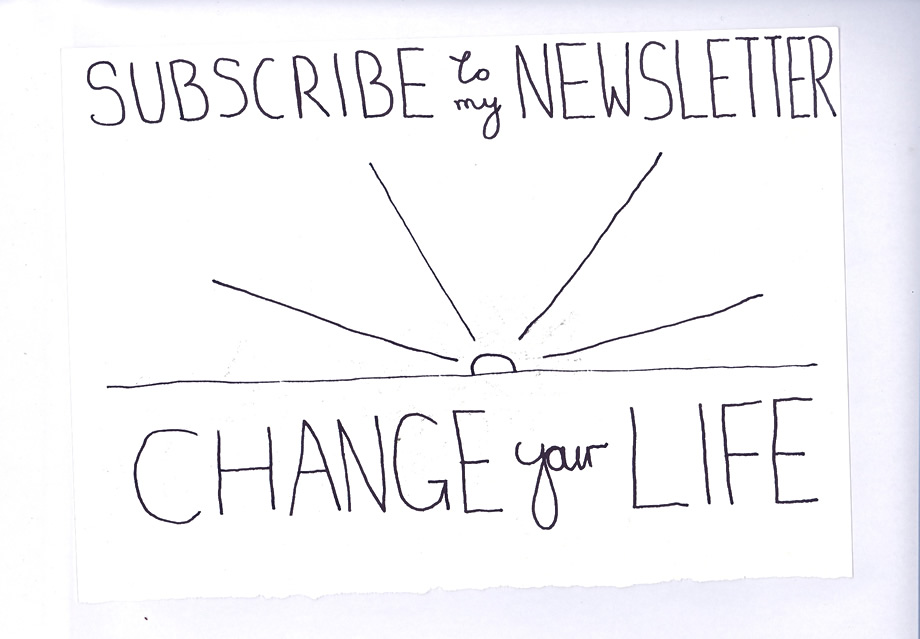 SUBSCRIBE to my NEWSLETTER
CHANGE your LIFE